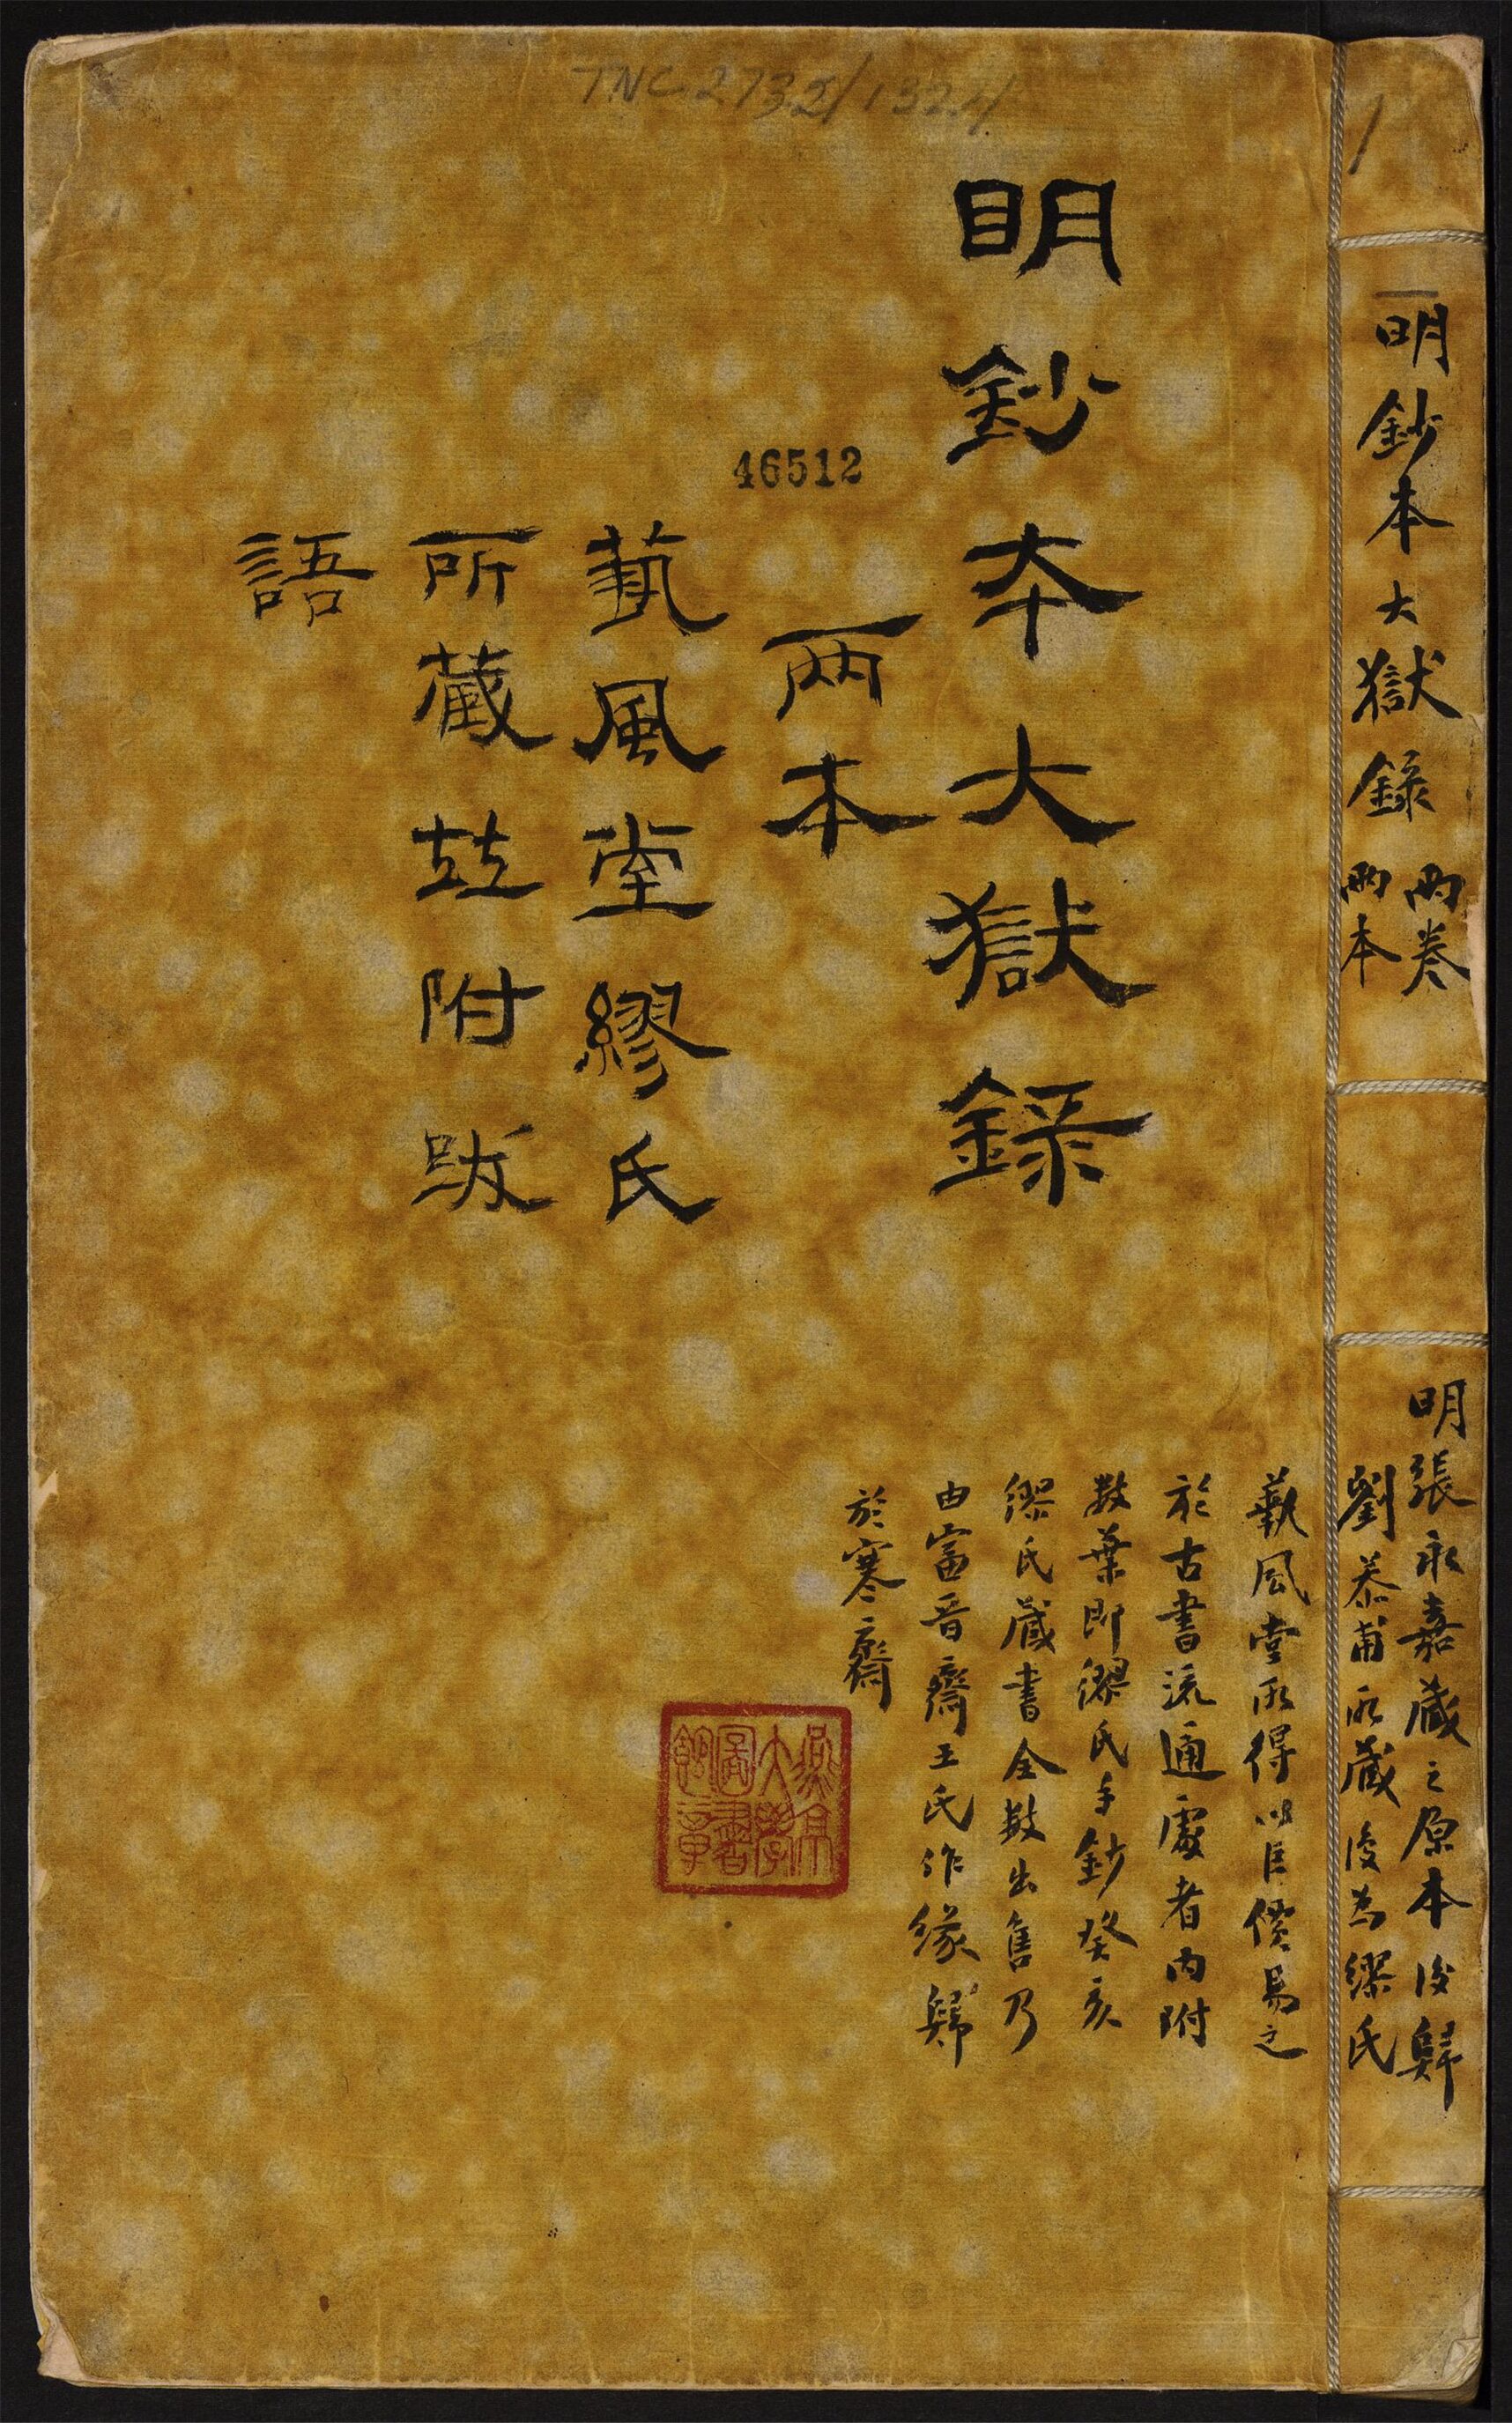 TNC 2732/1324
1
明鈔本大獄錄 兩卷
兩本
明張永嘉藏之原本後歸
劉恭甫所藏後為繆氏
藝風堂所得以巨價易之
於古書流通處者內附
數葉即繆氏手鈔癸亥
繆氏藏書全數出售乃
由富晉齋王氏作緣歸
於寒齋
明鈔本大獄錄
兩本
46512
藝風堂繆氏
所藏竝附跋
語
燕京
大學
圖書
館章